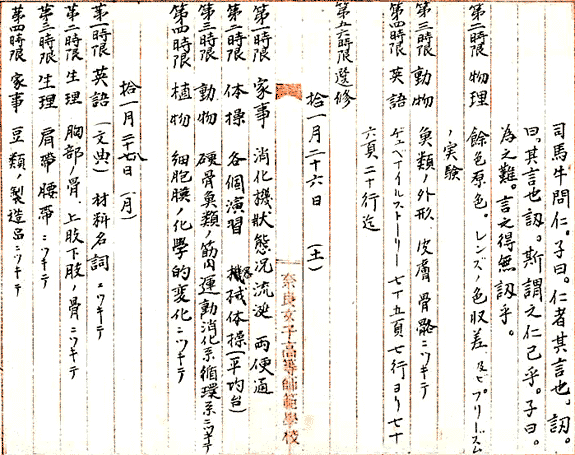 司馬牛問仁。子曰。仁者其言也、訒。
曰。其言也訒。斯謂之仁已乎。子曰。
為之難。言之得無訒乎。
第二時限 物理 餘色原色。レンズノ色収差、及ビプリーズム
ノ実験
第三時限 動物 魚類ノ外形、皮膚骨骼ニツキテ
第四時限 英語 七十五頁七行ヨリ七十
六頁二十行迄
第五六時限 選修
拾一月二十六日 (土)
第一時限 家事 消化機状態況流涎 両便通
第二時限 体操 各個演習 機械体操(平均台)
第三時限 動物 硬骨魚類ノ筋肉運動消化系循環系ニツキテ
第四時限 植物 細胞膜ノ化學的変化ニツキテ
拾一月二十八日 (月)
第一時限 英語 (文典) 材料名詞ニツキテ
第二時限 生理 胸部ノ骨、上肢下肢ノ骨ニツキテ
第三時限 生理 肩帯腰帯ニツキテ
第四時限 家事 豆類ノ製造品ニツキテ
奈良女子高等師範學校